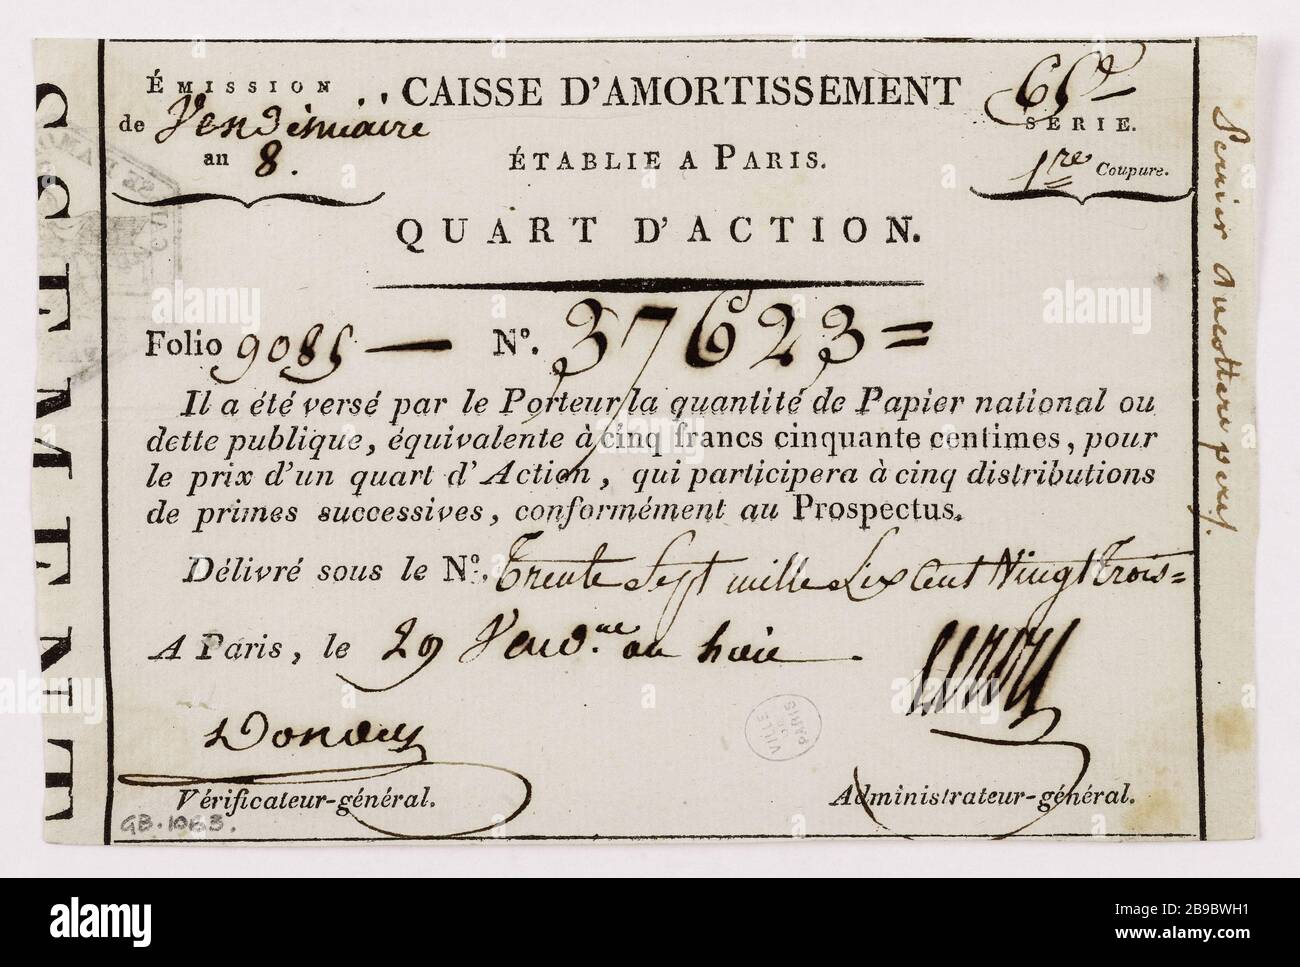 ÉMISSION
de Vendémiaire
an 8.
CAISSE D'AMORTISSEMENT
ÉTABLIE A PARIS.
65e
SÉRIE.
1re Coupure.
QUART D'ACTION.
Folio 9085 — N°. 37623 =
Il a été versé par le Porteur la quantité de Papier national ou
dette publique, équivalente à cinq francs cinquante centimes, pour
le prix d'un quart d'Action, qui participera à cinq distributions
de primes successives, conformément au Prospectus.
Délivré sous le N°. Trente Sept mille Six Cent Vingt Trois =
A Paris, le 29 Vend.re an huit
Vérificateur-général.
Administrateur-général.
VILLE DE PARIS
GB.1083.
SSEMENT
alamy
Image ID: 2B9BWH1
www.alamy.com